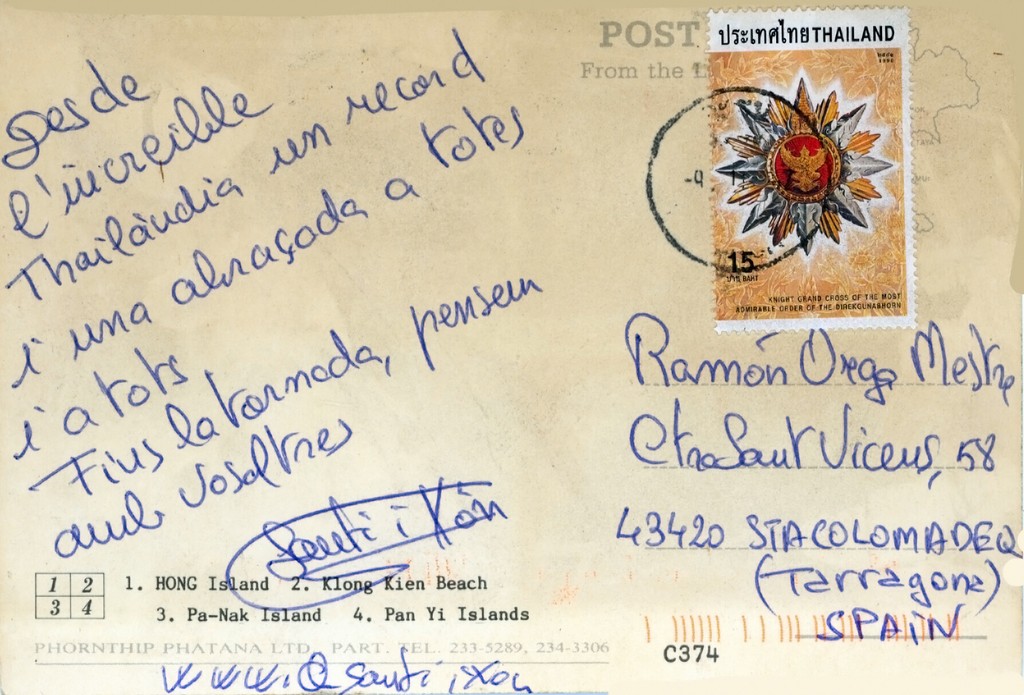 Desde
l'increible
Thailàndia un record
i una abraçada a totes
i a tots
Fins la tornada, pensem
amb vosaltres
Santi i Xon
1 2
3 4
1. HONG Island 2. Klong Kien Beach
3. Pa-Nak Island 4. Pan Yi Islands
PHORNTHIP PHATANA LTD. PART. TEL. 233-5289, 234-3306
www.@santiixon
POST
From the
ประเทศไทย THAILAND
1996
15
บาท BAHT
KNIGHT GRAND CROSS OF THE MOST
ADMIRABLE ORDER OF THE DIREKGUNABHORN
Ramón Orega Mestre
Ctra Sant Vicens, 58
43420 STACOLOMADEQ
(Tarragona)
SPAIN
C374